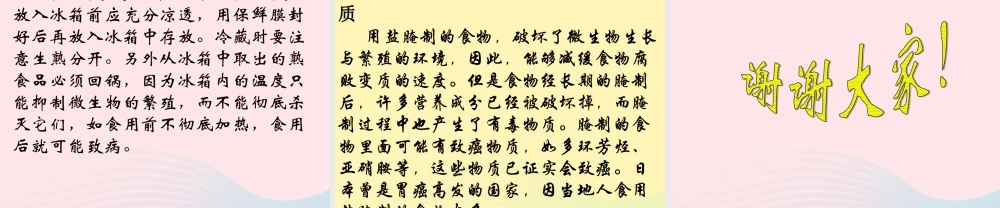 放入冰箱前应充分凉透，用保鲜膜封
好后再放入冰箱中存放。冷藏时要注
意生熟分开。另外从冰箱中取出的熟
食品必须回锅，因为冰箱内的温度只
能抑制微生物的繁殖，而不能彻底杀
灭它们，如食用前不彻底加热，食用
后就可能致病。
质
用盐腌制的食物，破坏了微生物生长
与繁殖的环境，因此，能够减缓食物腐
败变质的速度。但是食物经长期的腌制
后，许多营养成分已经被破坏掉，而腌
制过程中也产生了有毒物质。腌制的食
物里面可能有致癌物质，如多环芳烃、
亚硝胺等，这些物质已证实会致癌。日
本曾是胃癌高发的国家，因当地人食用
谢谢大家！